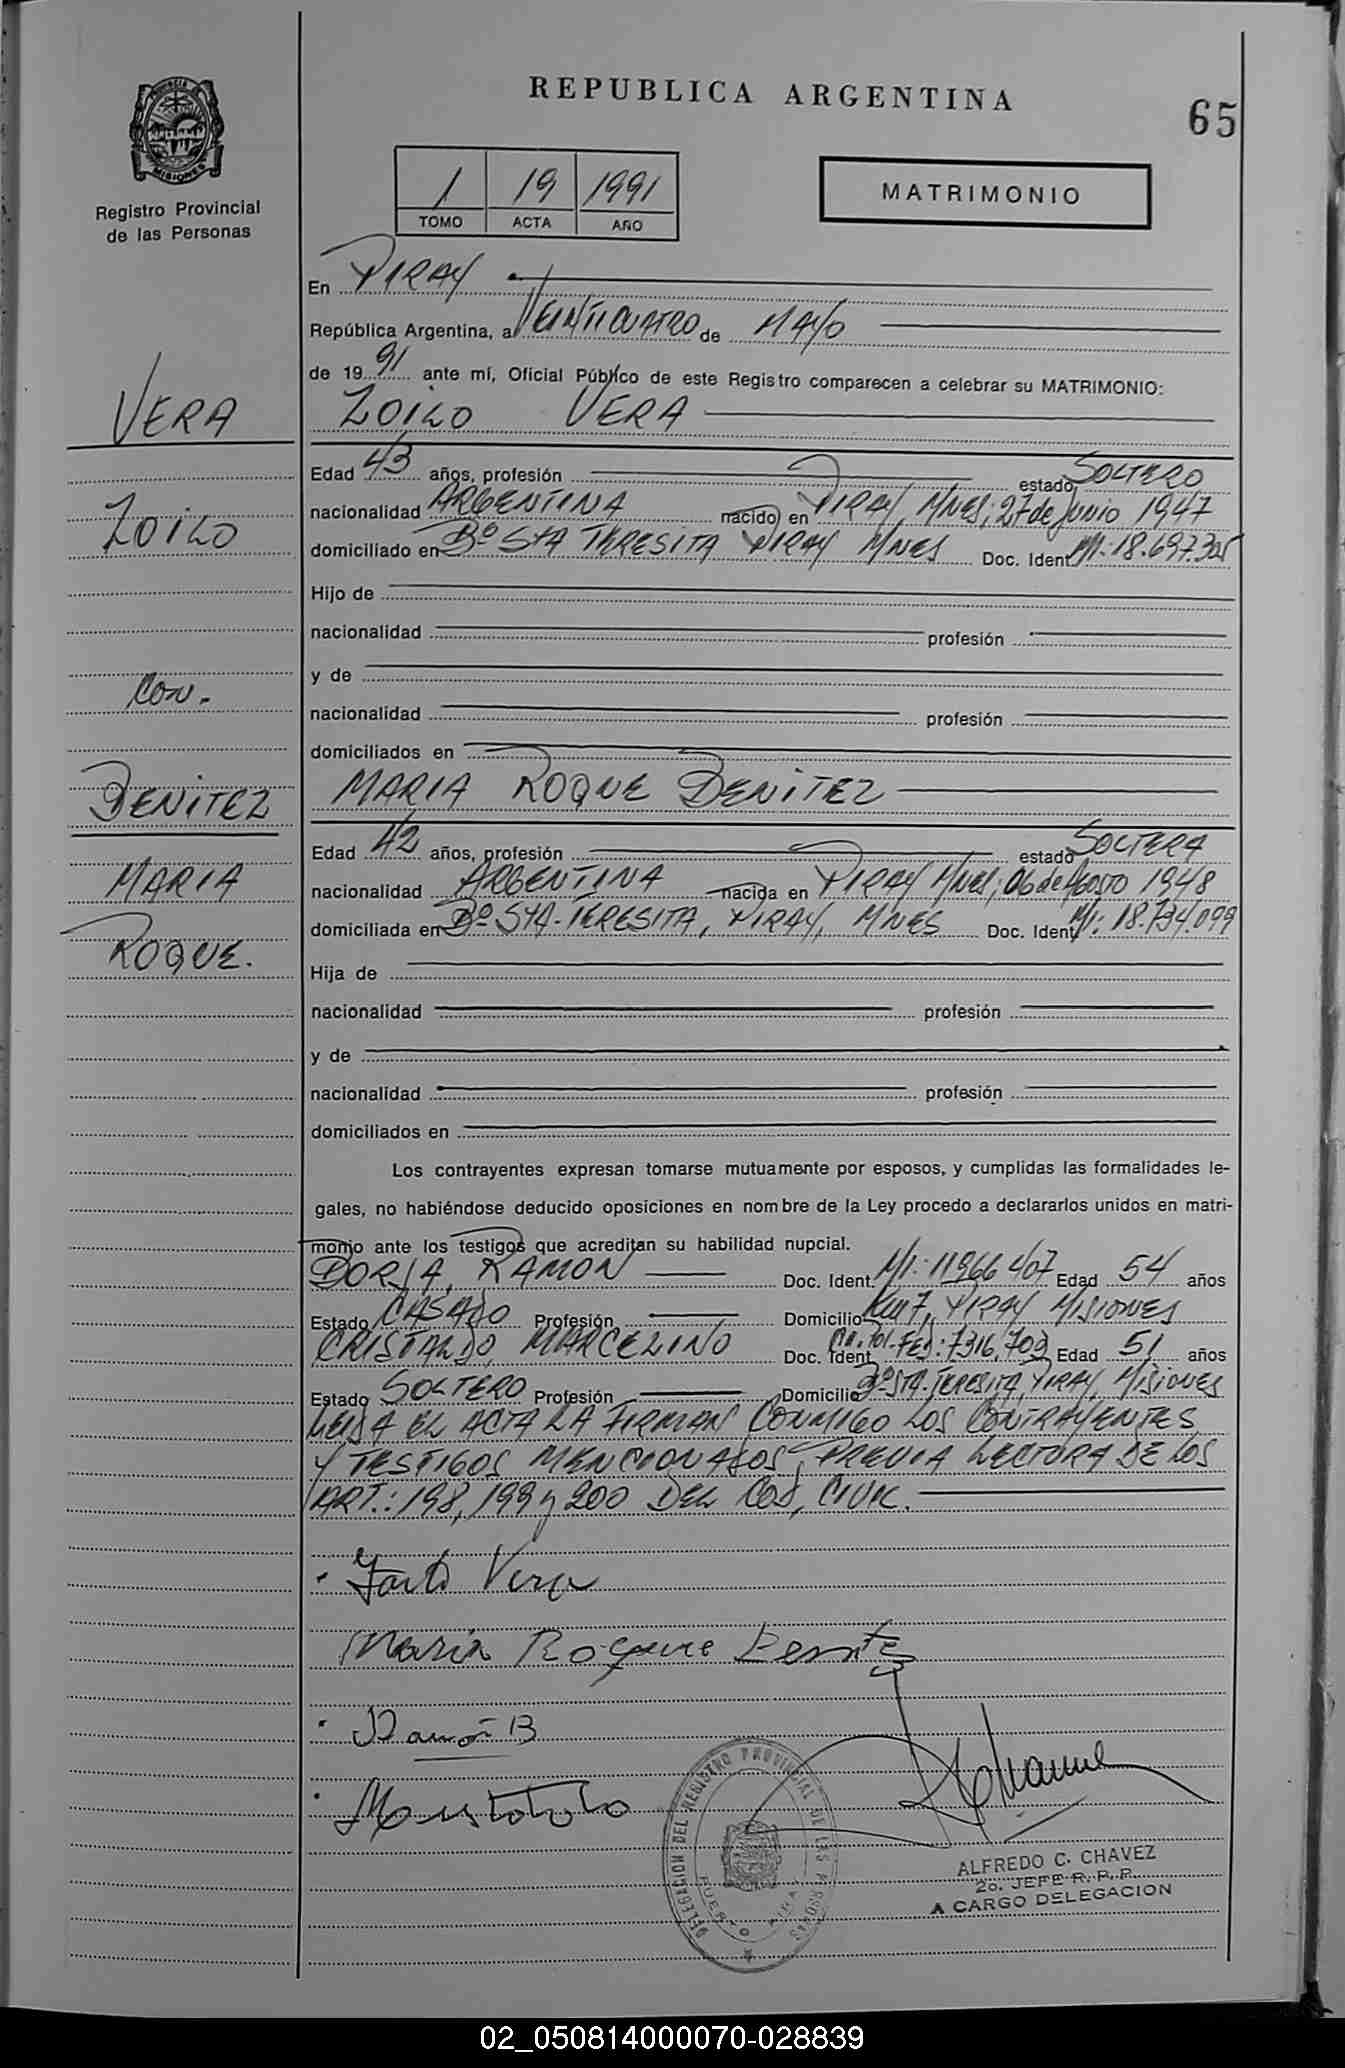 REPUBLICA ARGENTINA
65
PROVINCIA DE MISIONES
Registro Provincial
de las Personas
1 19 1991
TOMO ACTA AÑO
MATRIMONIO
En PIRAY
República Argentina, a VEINTICUATRO de MAYO
de 19 91 ante mí, Oficial Público de este Registro comparecen a celebrar su MATRIMONIO:
VERA
ZOILO VERA
Edad 43 años, profesión estado SOLTERO
nacionalidad ARGENTINA nacido en PIRAY, MNES; 27 de Junio 1947
ZOILO
domiciliado en Bº STA TERESITA PIRAY MNES Doc. Ident MI: 18.697.305
Hijo de
nacionalidad profesión
y de
CON.
nacionalidad profesión
domiciliados en
BENITEZ
MARIA ROQUE BENITEZ
Edad 42 años, profesión estado SOLTERA
MARIA
nacionalidad ARGENTINA nacida en PIRAY MNES; 06 de Agosto 1948
domiciliada en Bº STA. TERESITA, PIRAY, MNES Doc. Ident MI: 18.794.099
ROQUE.
Hija de
nacionalidad profesión
y de
nacionalidad profesión
domiciliados en
Los contrayentes expresan tomarse mutuamente por esposos, y cumplidas las formalidades le-
gales, no habiéndose deducido oposiciones en nombre de la Ley procedo a declararlos unidos en matri-
monio ante los testigos que acreditan su habilidad nupcial.
BORJA, RAMON Doc. Ident. MI: 11966407 Edad 54 años
Estado CASADO Profesión Domicilio Km 7, PIRAY MISIONES
CRISTALDO, MARCELINO Doc. Ident Ce. Pol. FED: 7316,703 Edad 51 años
Estado SOLTERO Profesión Domicilio Bº STA. TERESITA, PIRAY, MISIONES
LEIDA EL ACTA LA FIRMAN CONMIGO LOS CONTRAYENTES
Y TESTIGOS MENCIONADOS, PREVIA LECTURA DE LOS
ART.: 198, 199 y 200 DEL COD, CIVIL.
Vera
Maria Roque Benitez
Ramón B
DELEGACION DEL REGISTRO PROVINCIAL DE LAS PERSONAS
PUERTO PIRAY
ALFREDO C. CHAVEZ
2o. JEFE R. P. P.
A CARGO DELEGACION
02_050814000070-028839